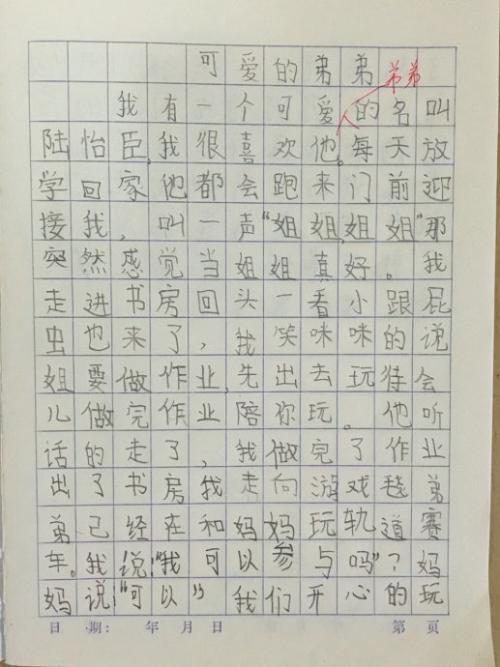 可爱的弟弟
弟弟
我有一个可爱的名叫
陆怡臣,我很喜欢他。每天放
学回家他都会跑来门前迎
接我,叫一声“姐姐,姐姐”那
突然感觉当姐姐真好。我
走进书房回头一看小跟屁
虫也来了,我笑咪咪的说
姐要做作业,先出去玩待会
儿做完作业陪你玩。他听
话的走了,我做完了作业
出了书房我走向游戏毯弟
弟已经在和妈妈玩轨道赛
车。我说:“我可以参与吗”?妈
妈说:“可以”我们开心的玩
日期: 年 月 日 第 页